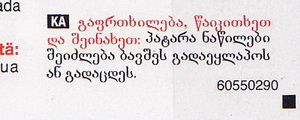 ada
KA გაფრთხილება, წაიკითხეთ
და შეინახეთ: პატარა ნაწილები
tä:
შეიძლება ბავშვს გადაეყლაპოს
ua
ან გადაცდეს.
60550290